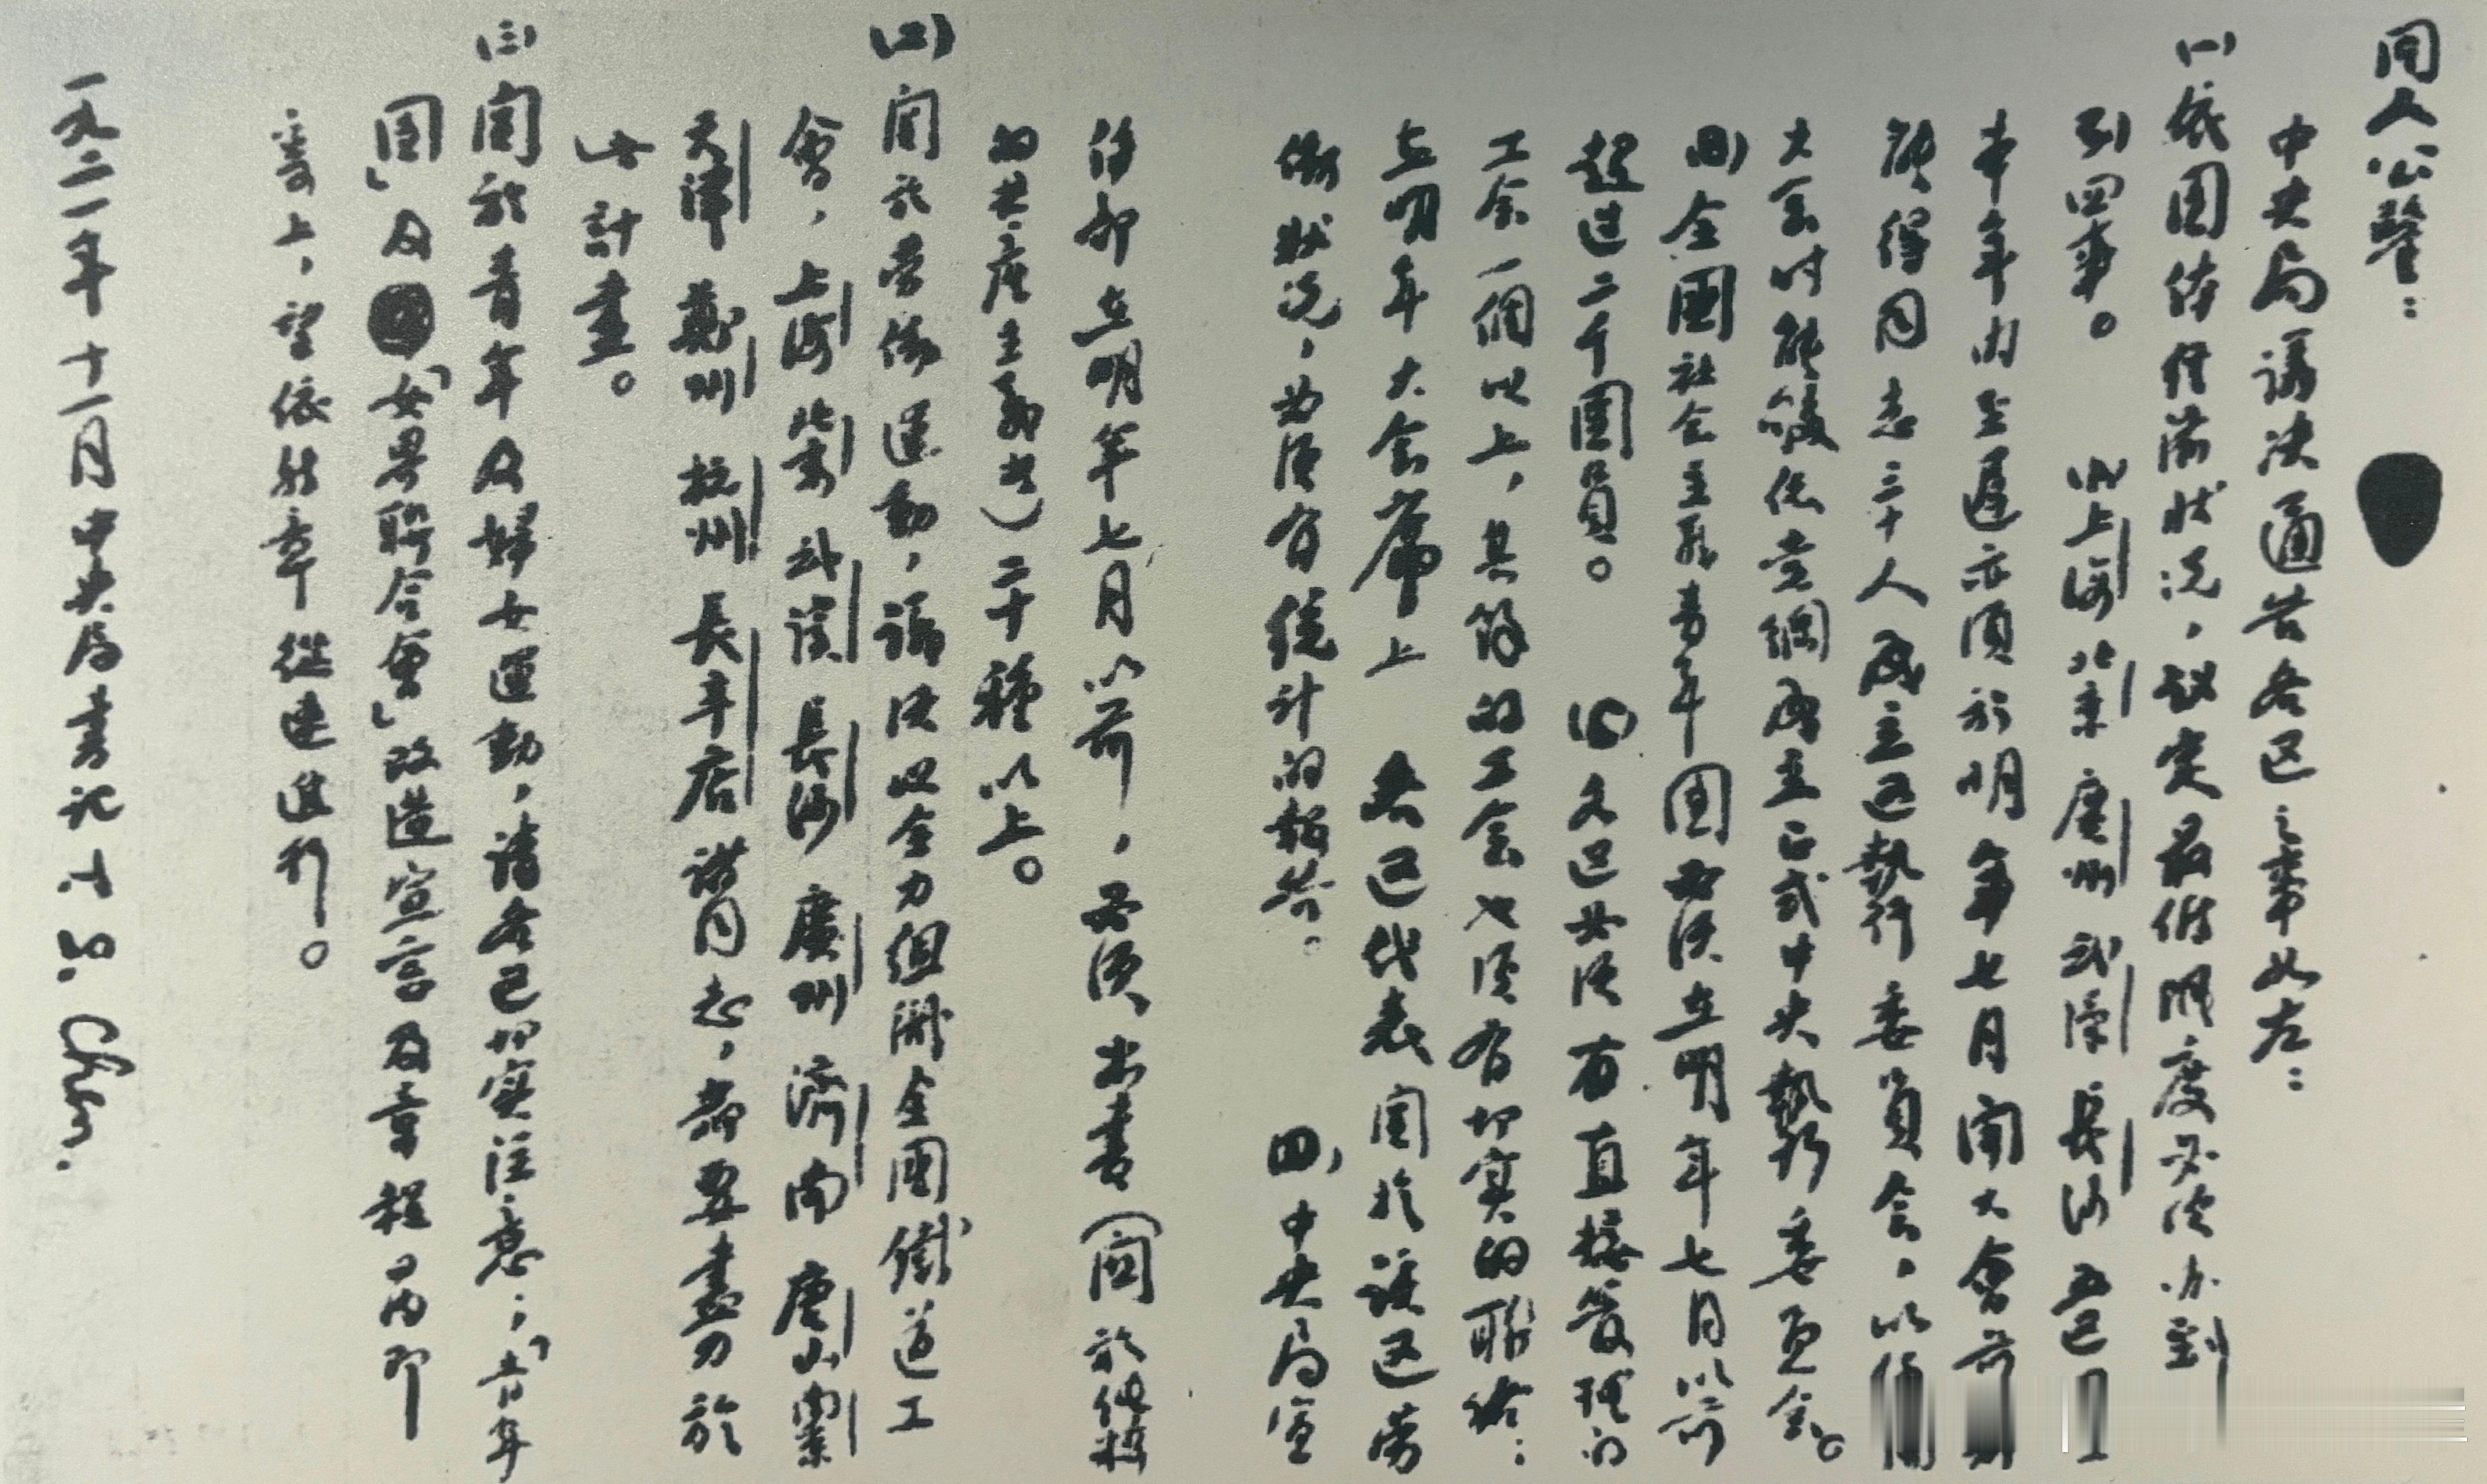 同人公鑒：
中央局議决通告各区之事如左：
(一)依团体經济狀况，議定最低限度必須办到
列四事。 (A)上海 北京 廣州 武漢 長沙 五区
本年内至遲亦須於明年七月開大會前
能得同志三十人成立区執行委員会，以便
大会时能够依党綱成立正式中央執行委員会。
(B)全國社会主義青年团必須在明年七月以前
超过二千團員。 (C)各区必須有直接管理的
工会一個以上，其餘的工会也須有切实的聯絡；
在明年大会席上 各区代表関於該区劳
働狀况，必須有統计的報告。
(四)中央局宣
傳部在明年七月以前，必須出書(関於純粹
的共產主義者)二十種以上。
(二)関於劳働運動，議决以全力組織全國鐵道工
會，上海 北京 武漢 長沙 廣州 濟南 唐山 南京
天津 鄭州 杭州 長辛店 諸同志，都要盡力於
此計畫。
(三)関於青年及婦女運動，請各区切实注意；「青年
团」及「女界聯合會」改造宣言及章程日内即
寄上，望依新章從速進行。
一九二一年十一月 中央局書記 T. S. Chen.